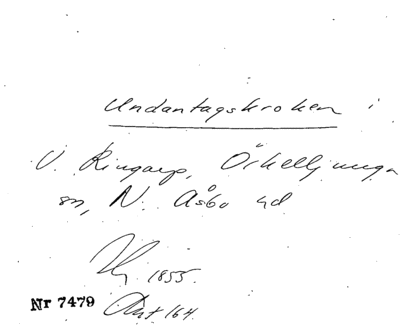 Undantagskroken i
V. Ringarp, Örkelljunga
sn, N. Åsbo hd
1855.
Nr 7479 Akt 164.